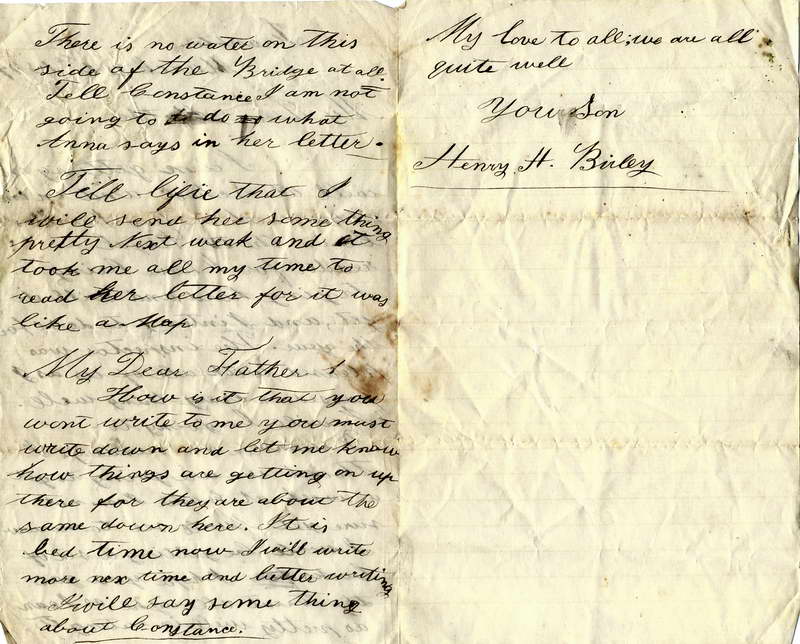 There is no water on this
side of the Bridge at all.
Tell Constance I am not
going to do so what
Anna says in her letter.
Tell lifie that I
will send her some thing
pretty Next weak and it
took me all my time to
read her letter for it was
like a Map
My Dear Father
How is it that you
wont write to me you must
write down and let me know
how things are getting on up
there for they are about the
same down here. It is
bed time now I will write
more nex time and better writing
I will say some thing
about Constance.
My love to all; we are all
quite well
You Son
Henry H. Birley